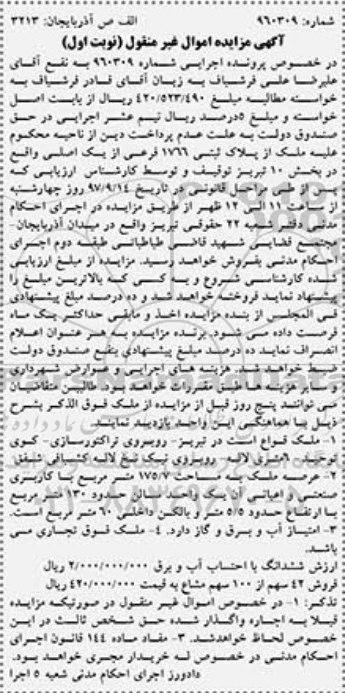 شماره: ۹۶۰۳۰۹ الف ص آذربایجان: ۳۲۱۳
آگهی مزایده اموال غیر منقول (نوبت اول)
در خصوص پرونده اجرایی شماره ۹۶۰۳۰۹ به نفع آقای
علیرضا علی فرشباف به زیان آقای قادر فرشباف به
خواسته مطالبه مبلغ ۴۲۰/۵۲۳/۴۹۰ ریال از بابت اصل
خواسته و مبلغ ۵درصد ریال نیم عشر اجرایی در حق
صندوق دولت به علت عدم پرداخت دین از ناحیه محکوم
علیه ملک از پلاک ثبتی ۱۷۶۶ فرعی از یک اصلی واقع
در بخش ۱۰ تبریز توقیف و توسط کارشناس ارزیابی که
پس از طی مراحل قانونی در تاریخ ۹۷/۹/۱۴ روز چهارشنبه
از ساعت ۱۱ الی ۱۲ ظهر از طریق مزایده در اجرای احکام
مدنی دفتر شعبه ۲۲ حقوقی تبریز واقع در میدان آذربایجان-
مجتمع قضایی شهید قاضی طباطبائی طبقه دوم اجرای
احکام مدنی بفروش خواهد رسید. مزایده از مبلغ ارزیابی
شده کارشناسی شروع و به کسی که بالاترین مبلغ را
پیشنهاد نماید فروخته خواهد شد و ده درصد مبلغ پیشنهادی
فی المجلس از بنده مزایده اخذ و مابقی حداکثر یک ماه
فرصت داده می شود. برنده مزایده به هر عنوان اعلام
انصراف نماید ده درصد مبلغ پیشنهادی بنفع صندوق دولت
ضبط خواهد شد. هزینه های اجرایی و عوارض شهرداری
و سایر هزینه ها طبق مقررات خواهد شد. طالبین متقاضیان
می توانند پنج روز قبل از مزایده از ملک فوق الذکر بشرح
ذیل با هماهنگی این واحد بازدید نمایند.
۱- ملک قواع است در تبریز- روبروی تراکتورسازی- کوی
توحید- ۶متری لاله- روبروی نیک نخ لاله کشبافی شفق.
۲- عرصه ملک به مساحت ۱۷۵/۷ متر مربع با کاربری
صنعتی و اعیانی آن یک واحد سالن حدود ۱۳۰ متر مربع
با ارتفاع حدود ۵/۵ متر و بالکن داخلی ۶۰ متر مربع است.
۳- امتیاز آب و برق و گاز دارد. ۴- ملک فوق تجاری می
باشد.
ارزش ششدانگ با احتساب آب و برق ۲/۰۰۰/۰۰۰/۰۰۰ ریال
فروش ۴۲ سهم از ۱۰۰ سهم مشاع به قیمت ۴۲۰/۰۰۰/۰۰۰ ریال
تذکر: ۱- در خصوص اموال غیر منقول در صورتیکه مزایده
قبلا به اجاره واگذار شده حق شخص ثالث در این
خصوص لحاظ خواهدشد. ۳- مفاد ماده ۱۴۴ قانون اجرای
احکام مدنی در خصوص له خریدار مجری خواهد بود.
دادورز اجرای احکام مدنی شعبه ۵ اجرا